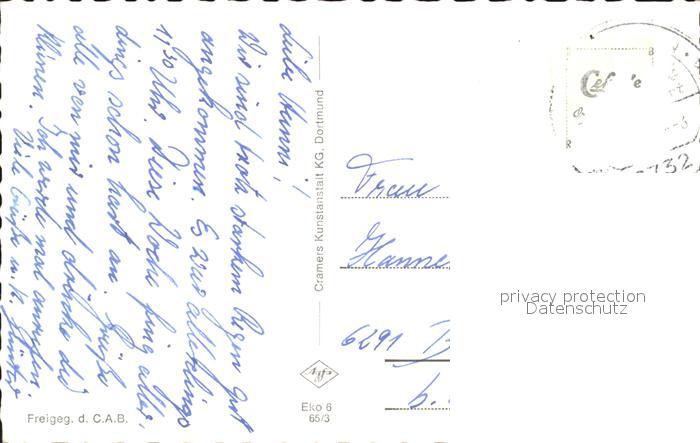 Liebe Hanni!
Wir sind trotz starkem Regen gut
angekommen. Es war allerdings
11.30 Uhr. Diese Woche fing aller-
dings schon hart an. Grüße
alle von mir und drücke die
kleinen. Ich werde mal anrufen
Viele Grüße
Cramers Kunstanstalt KG, Dortmund
Frau
Hanne
6291
b.
Freigeg. d. C.A.B.
Agfa
Eko 6
65/3
privacy protection
Datenschutz